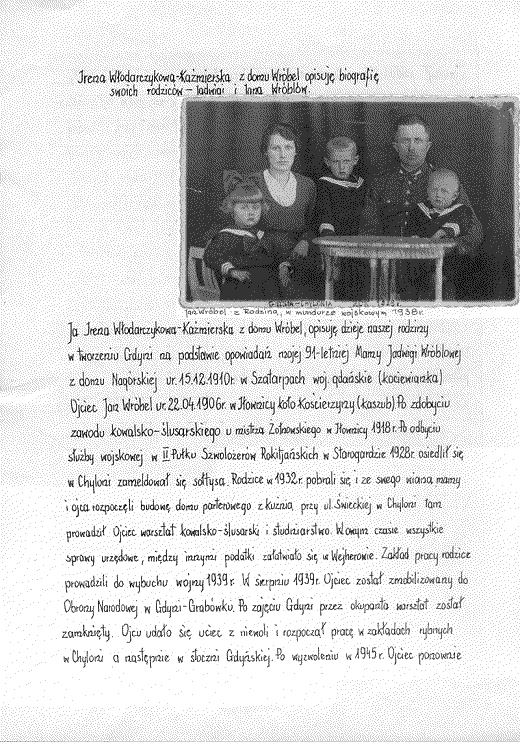 Irena Włodarczykowa-Kaźmierska z domu Wróbel opisuję biografię
swoich rodziców – Jadwigi i Jana Wróblów.
GDYNIA-CHYLONIA
Jan Wróbel z Rodziną, w mundurze wojskowym 1938r.
Ja Irena Włodarczykowa-Kaźmierska z domu Wróbel, opisuję dzieje naszej rodziny
w tworzeniu Gdyni na podstawie opowiadań mojej 91-letniej Mamy Jadwigi Wróblowej
z domu Nagórskiej ur. 15.12.1910r. w Szatarpach woj. gdańskie (kociewianka)
Ojciec Jan Wróbel ur. 22.04.1906r. w Iłownicy koło Kościerzyny (kaszub). Po zdobyciu
zawodu kowalsko-ślusarskiego u mistrza w Iłownicy 1918r. Po odbyciu
służby wojskowej w II Pułku Szwoleżerów Rokitjańskich w Starogardzie 1928r. osiedlił się
w Chyloni zameldował się sołtysa. Rodzice w 1932r. pobrali się i ze swego wiana mamy
i ojca rozpoczęli budowę domu parterowego z kuźnią, przy ul. Świeckiej w Chyloni tam
prowadził Ojciec warsztat kowalsko-ślusarski i studniarstwo. W owym czasie wszystkie
sprawy urzędowe, między innymi podatki załatwiało się w Wejherowie. Zakład pracy rodzice
prowadzili do wybuchu wojny 1939r. W sierpniu 1939r. Ojciec został zmobilizowany do
Obrony Narodowej w Gdyni-Grabówku. Po zajęciu Gdyni przez okupanta warsztat został
zamknięty. Ojcu udało się uciec z niewoli i rozpoczął pracę w zakładach rybnych
w Chyloni a następnie w stoczni Gdyńskiej. Po wyzwoleniu w 1945r. Ojciec ponownie